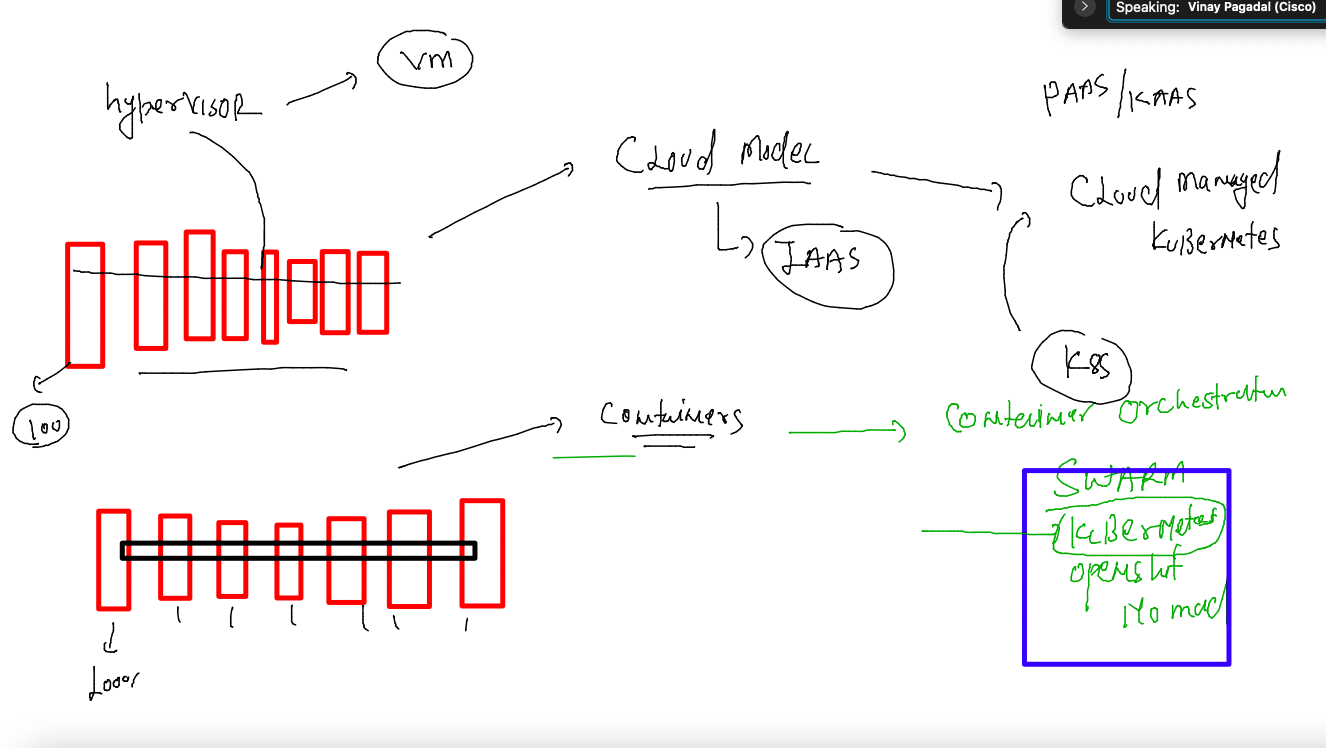 Speaking: Vinay Pagadal (Cisco)
VM
hypervISOR
PAAS/KAAS
CLoud Model
CLoud managed
KuBerNetes
IAAS
K8S
100
Containers
Container Orchestration
SWARM
KuBerNetes
openshif
Nomad
1000